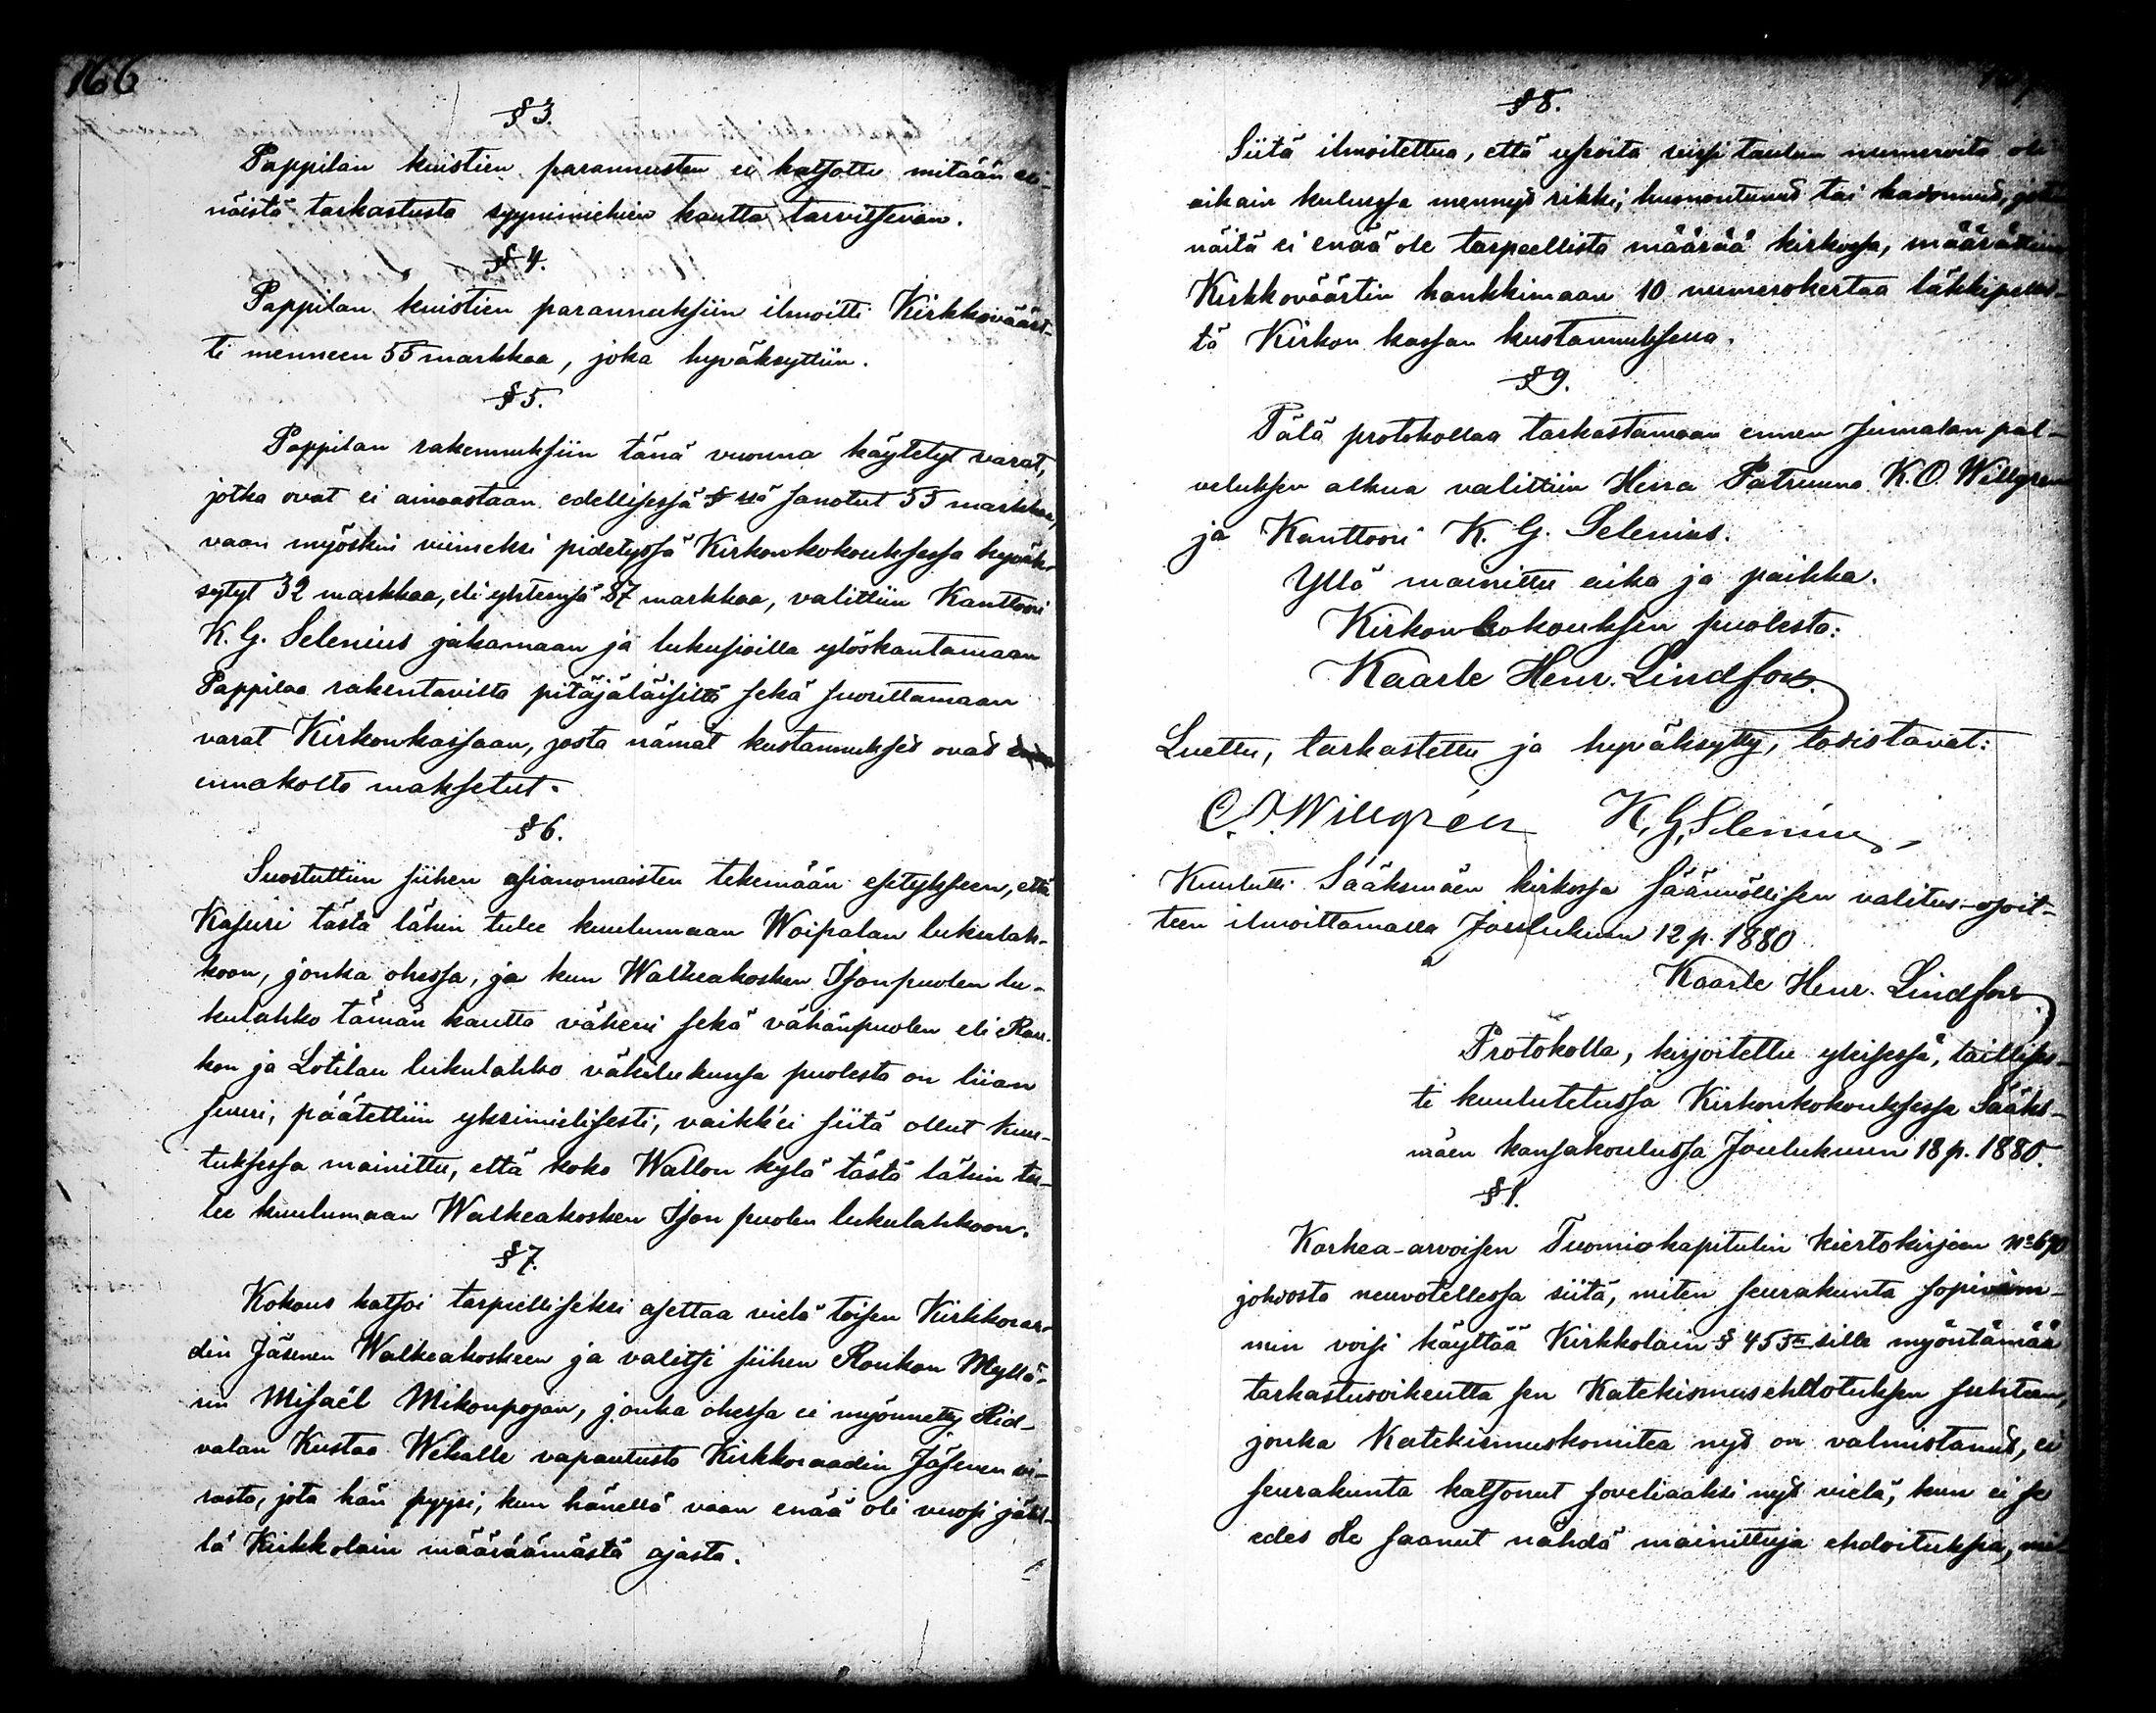 166
§ 3.
Pappilan kuistien parannusten ei katsottu mitään eri-
näistä tarkastusta syynimiehien kautta tarvitsevan.
§ 4.
Pappilan kuistien parannuksiin ilmoitti Kirkkoväärt-
ti menneen 55 markkaa, joka hyväksyttiin.
§ 5.
Pappilan rakennuksiin tänä vuonna käytetyt varat,
jotka ovat ei ainoastaan edellisessä § ssä sanotut 55 markkaa,
vaan myöskin viimeksi pidetyssä Kirkonkokouksessa hyväk-
sytyt 32 markkaa, eli yhteensä 87 markkaa, valittiin Kanttoori
K. G. Selenius jakamaan ja lukusioilla ylöskantamaan
Pappilaa rakentavilta pitäjäläisiltä sekä suorittamaan
varat Kirkonkassaan, josta nämät kustannukset ovat
ennakolta maksetut.
§ 6.
Suostuttiin siihen asianomaisten tekemään esitykseen, että
Kasuri tästä lähin tulee kuulumaan Woipalan lukulah-
koon, jonka ohessa, ja kun Walkeakosken Isonpuolen lu-
kulahko tämän kautta väheni sekä vähänpuolen eli Rau-
kon ja Lotilan lukulahko väkilukunsa puolesta on liian
suuri, päätettiin yksimielisesti, vaikk'ei siitä ollut kuu-
tuksessa mainittu, että koko Wallon kylä tästä lähin tu-
lee kuulumaan Walkeakosken Ison puolen lukulahkoon.
§ 7.
Kokous katsoi tarpeelliseksi asettaa vielä toisen Kirkkoraa-
din Jäsenen Walkeakoskeen ja valitsi siihen Roukon Myllä-
rin Misaël Mikonpojan, jonka ohessa ei myönnetty Rid-
valan Kustaa Wekalle vapautusta Kirkkoraadin Jäsenen vi-
rasta, jota hän pyysi, kun hänellä vaan enää oli vuosi jäl-
lä Kirkkolain määräämästä ajasta.
§ 8.
Siitä ilmoitettua, että useita virsi taulun numeroita oli
aikain kulussa mennyt rikki, huonontunut tai kadonnut, jot
näitä ei enää ole tarpeellista määrää kirkossa, määrättiin
Kirkkoväärtin hankkimaan 10 numerokertaa läkkipellis-
tä Kirkon kassan kustannuksella.
§ 9.
Tätä protokollaa tarkastamaan ennen Jumalan pal-
veluksen alkua valittiin Herra Patruuna K. O. Willgren
ja Kanttoori K. G. Selenius.
Yllä mainittu aika ja paikka.
Kirkonkokouksen puolesta:
Kaarle Henr. Lindfors.
Luettu, tarkastettu ja hyväksytty, todistavat:
C. O. Willgrén K. G. Selenius
Kuulutti Sääksmäen kirkossa säännöllisen valitus-osoit-
teen ilmoittamalla Joulukuun 12 p. 1880
Kaarle Henr. Lindfors
Protokolla, kirjoitettu yleisessä, laillises-
ti kuulutetussa Kirkonkokouksessa Sääks-
mäen kansakoulussa Joulukuun 18 p. 1880.
§ 1.
Korkea-arvoisen Tuomiokapitulin kiertokirjeen No 690
johdosta neuvotellessa siitä, miten seurakunta sopivim-
min voisi käyttää Kirkkolain § 455 sille myöntämää
tarkastusoikeutta sen Katekismusehdotuksen suhteen,
jonka Katekismuskomitea nyt on valmistanut, ei
seurakunta katsonut soveliaaksi nyt vielä, kun ei se
edes ole saanut nähdä mainittuja ehdoituksia,